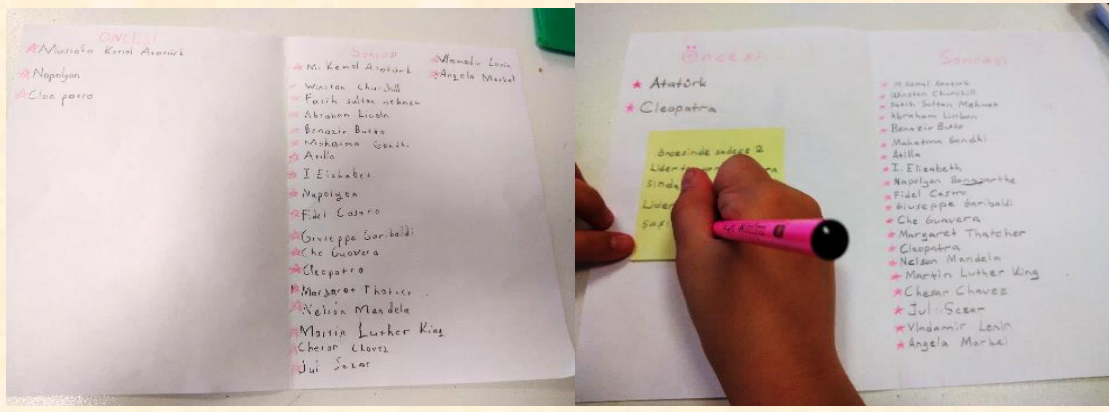 ÖNCESİ
Mustafa Kemal Atatürk
Napolyon
Cleo patra
Sonrası
M. Kemal Atatürk
Winston Churchill
Fatih sultan mehmen
Abraham Licoln
Benazir Butto
Mahatma Gandhi
Atilla
I Elizhabet
Napolyon
Fidel Castro
Giuseppe Garibaldi
Che Guavera
Cleopatra
Margaret Thatcher
Nelson Mandela
Martin Luther King
Chesar Chavez
Jul Sezar
Vlamadir Lenin
Angela Markel
Öncesi
Atatürk
Cleopatra
öncesinde sadece 2
Lider
sında
Lider
Sonrası
M Kemal Atatürk
Winston Churchill
Fatih Sultan Mehmet
Abraham Linkon
Benazir Butto
Mahatma Gandhi
Atilla
I. Elizabeth
Napolyon Bonaparthe
Fidel Castro
Giuseppe Garibaldi
Che Guavera
Margaret Thatcher
Cleopatra
Nelson Mandela
Martin Luther King
Chesar Chavez
Jul Sezar
Vladamir Lenin
Angela Markel